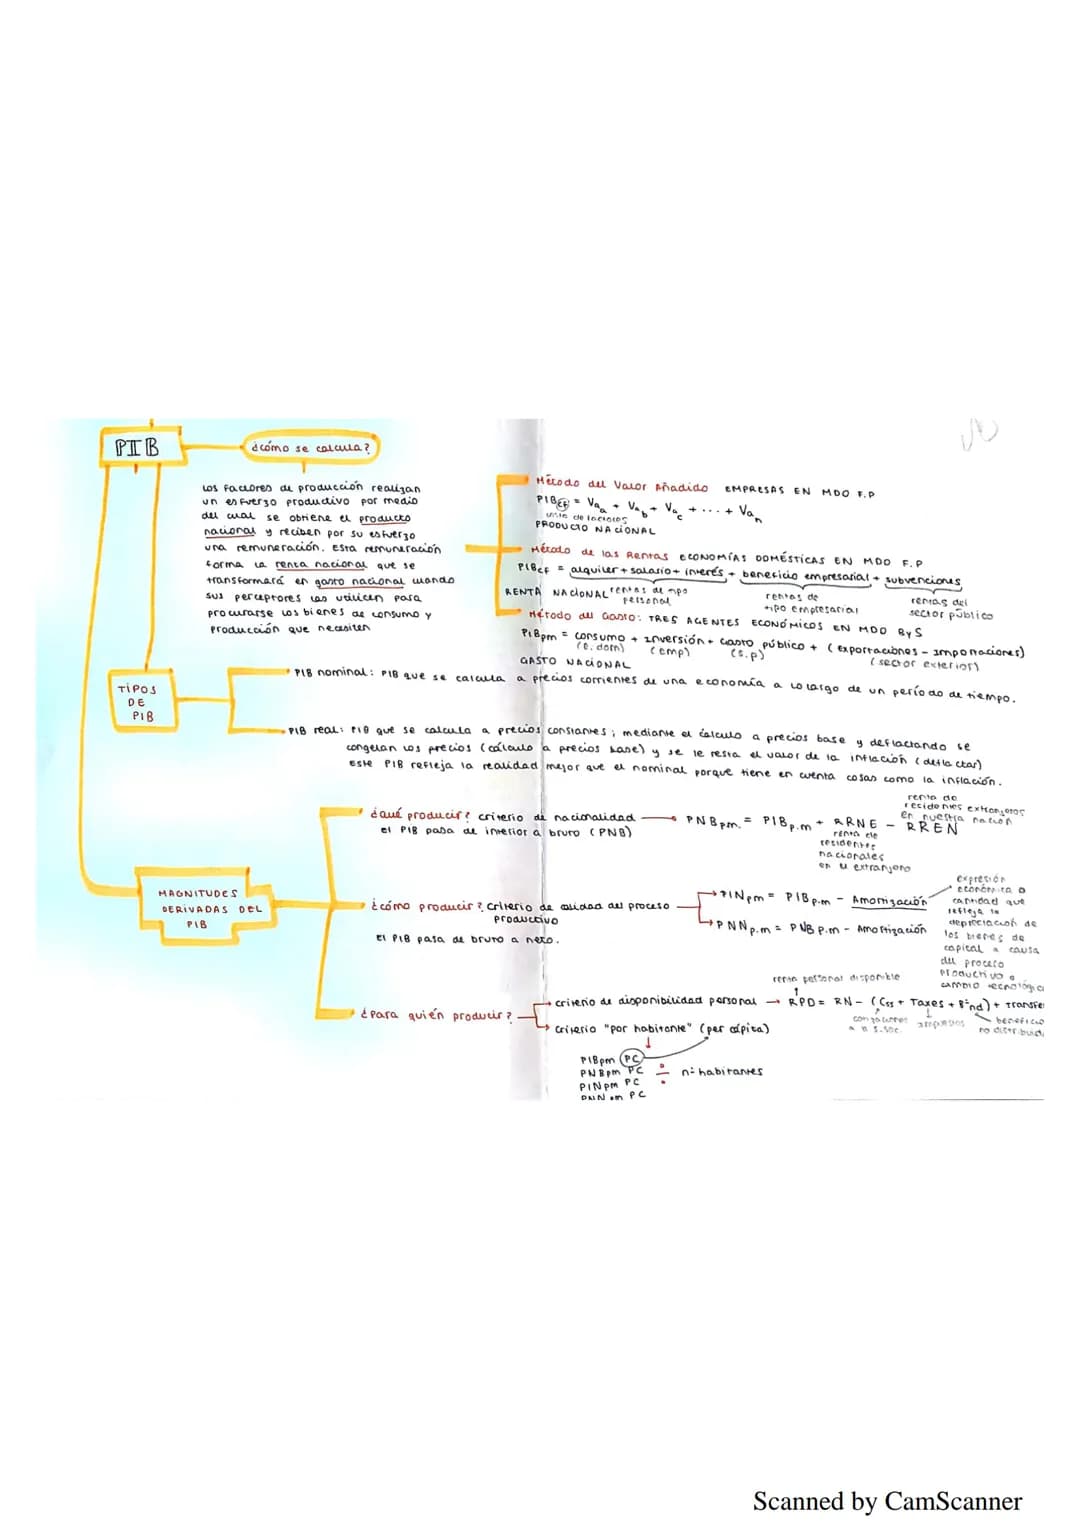 PIB
¿cómo se calcula?
Los factores de producción realizan
un esfuerzo productivo por medio
del cual se obtiene el producto
nacional y reciben por su esfuerzo
una remuneración. Esta remuneración
forma la renta nacional que se
transformará en gasto nacional cuando
sus perceptores las utilicen para
procurarse los bienes de consumo y
producción que necesiten
Método del Valor Añadido EMPRESAS EN MDO F.P
PIBcf = Vaa + Vab + Vac + ... + Van
PRODUCTO NACIONAL
Método de las Rentas ECONOMÍAS DOMÉSTICAS EN MDO F.P
PIBcf = alquiler + salario + interés + beneficio empresarial + subvenciones
RENTA NACIONAL rentas de tipo personal
rentas de tipo empresarial
rentas del sector público
Método del Gasto: TRES AGENTES ECONÓMICOS EN MDO BYS
PIBpm = consumo + inversión + Gasto público + (exportaciones - importaciones)
(e. dom) (emp) (s.p) (sector exterior)
GASTO NACIONAL
TIPOS
DE
PIB
PIB nominal: PIB que se calcula a precios corrientes de una economía a lo largo de un período de tiempo.
PIB real: PIB que se calcula a precios constantes; mediante el cálculo a precios base y deflactando se
congelan los precios (cálculo a precios base) y se le resta el valor de la inflación (deflactar)
Este PIB refleja la realidad mejor que el nominal porque tiene en cuenta cosas como la inflación.
MAGNITUDES
DERIVADAS DEL
PIB
¿qué producir? criterio de nacionalidad → PNBpm. = PIBp.m + RRNE - RREN
el PIB pasa de interior a bruto (PNB)
renta de
residentes
nacionales
en el extranjero
renta de
residentes extranjeros
en nuestra nación
¿cómo producir? criterio de calidad del proceso
productivo
El PIB pasa de bruto a neto.
PINpm = PIBp.m - Amortización
PNNp.m = PNBp.m - Amortización
expresión
económica o
cantidad que
refleja la
depreciación de
los bienes de
capital a causa
del proceso
productivo o
cambio tecnológico
¿Para quién producir?
renta personal disponible
criterio de disponibilidad personal → RPD = RN - (Css + Taxes + Bºnd) + Transfe
cotizaciones
a la s.soc.
impuestos
beneficio
no distribuid
criterio "por habitante" (per cápita)
PIBpm PC
PNBpm PC
PINpm PC
PNNpm PC
÷ nº habitantes
Scanned by CamScanner